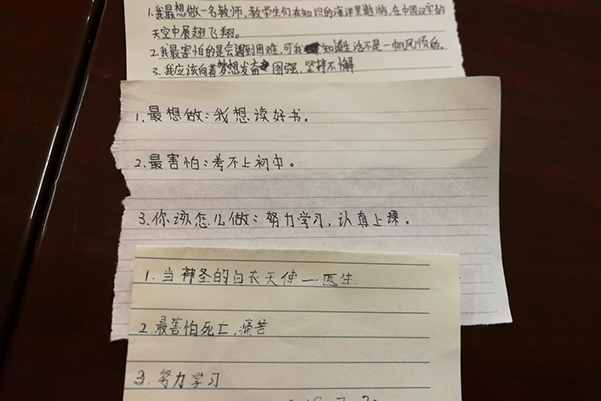 1.我最想做一名教师，教学生们在知识的海洋里遨游，在中国汉字的
天空中展翅飞翔。
2.我最害怕的是会遇到困难，可我知道生活不是一帆风顺的。
3.我应该向着梦想发奋图强，坚持不懈
1.最想做：我想读好书。
2.最害怕：考不上初中。
3.你该怎么做：努力学习，认真上课。
1.当神圣的白衣天使一医生
2.最害怕死亡，痛苦
3.努力学习